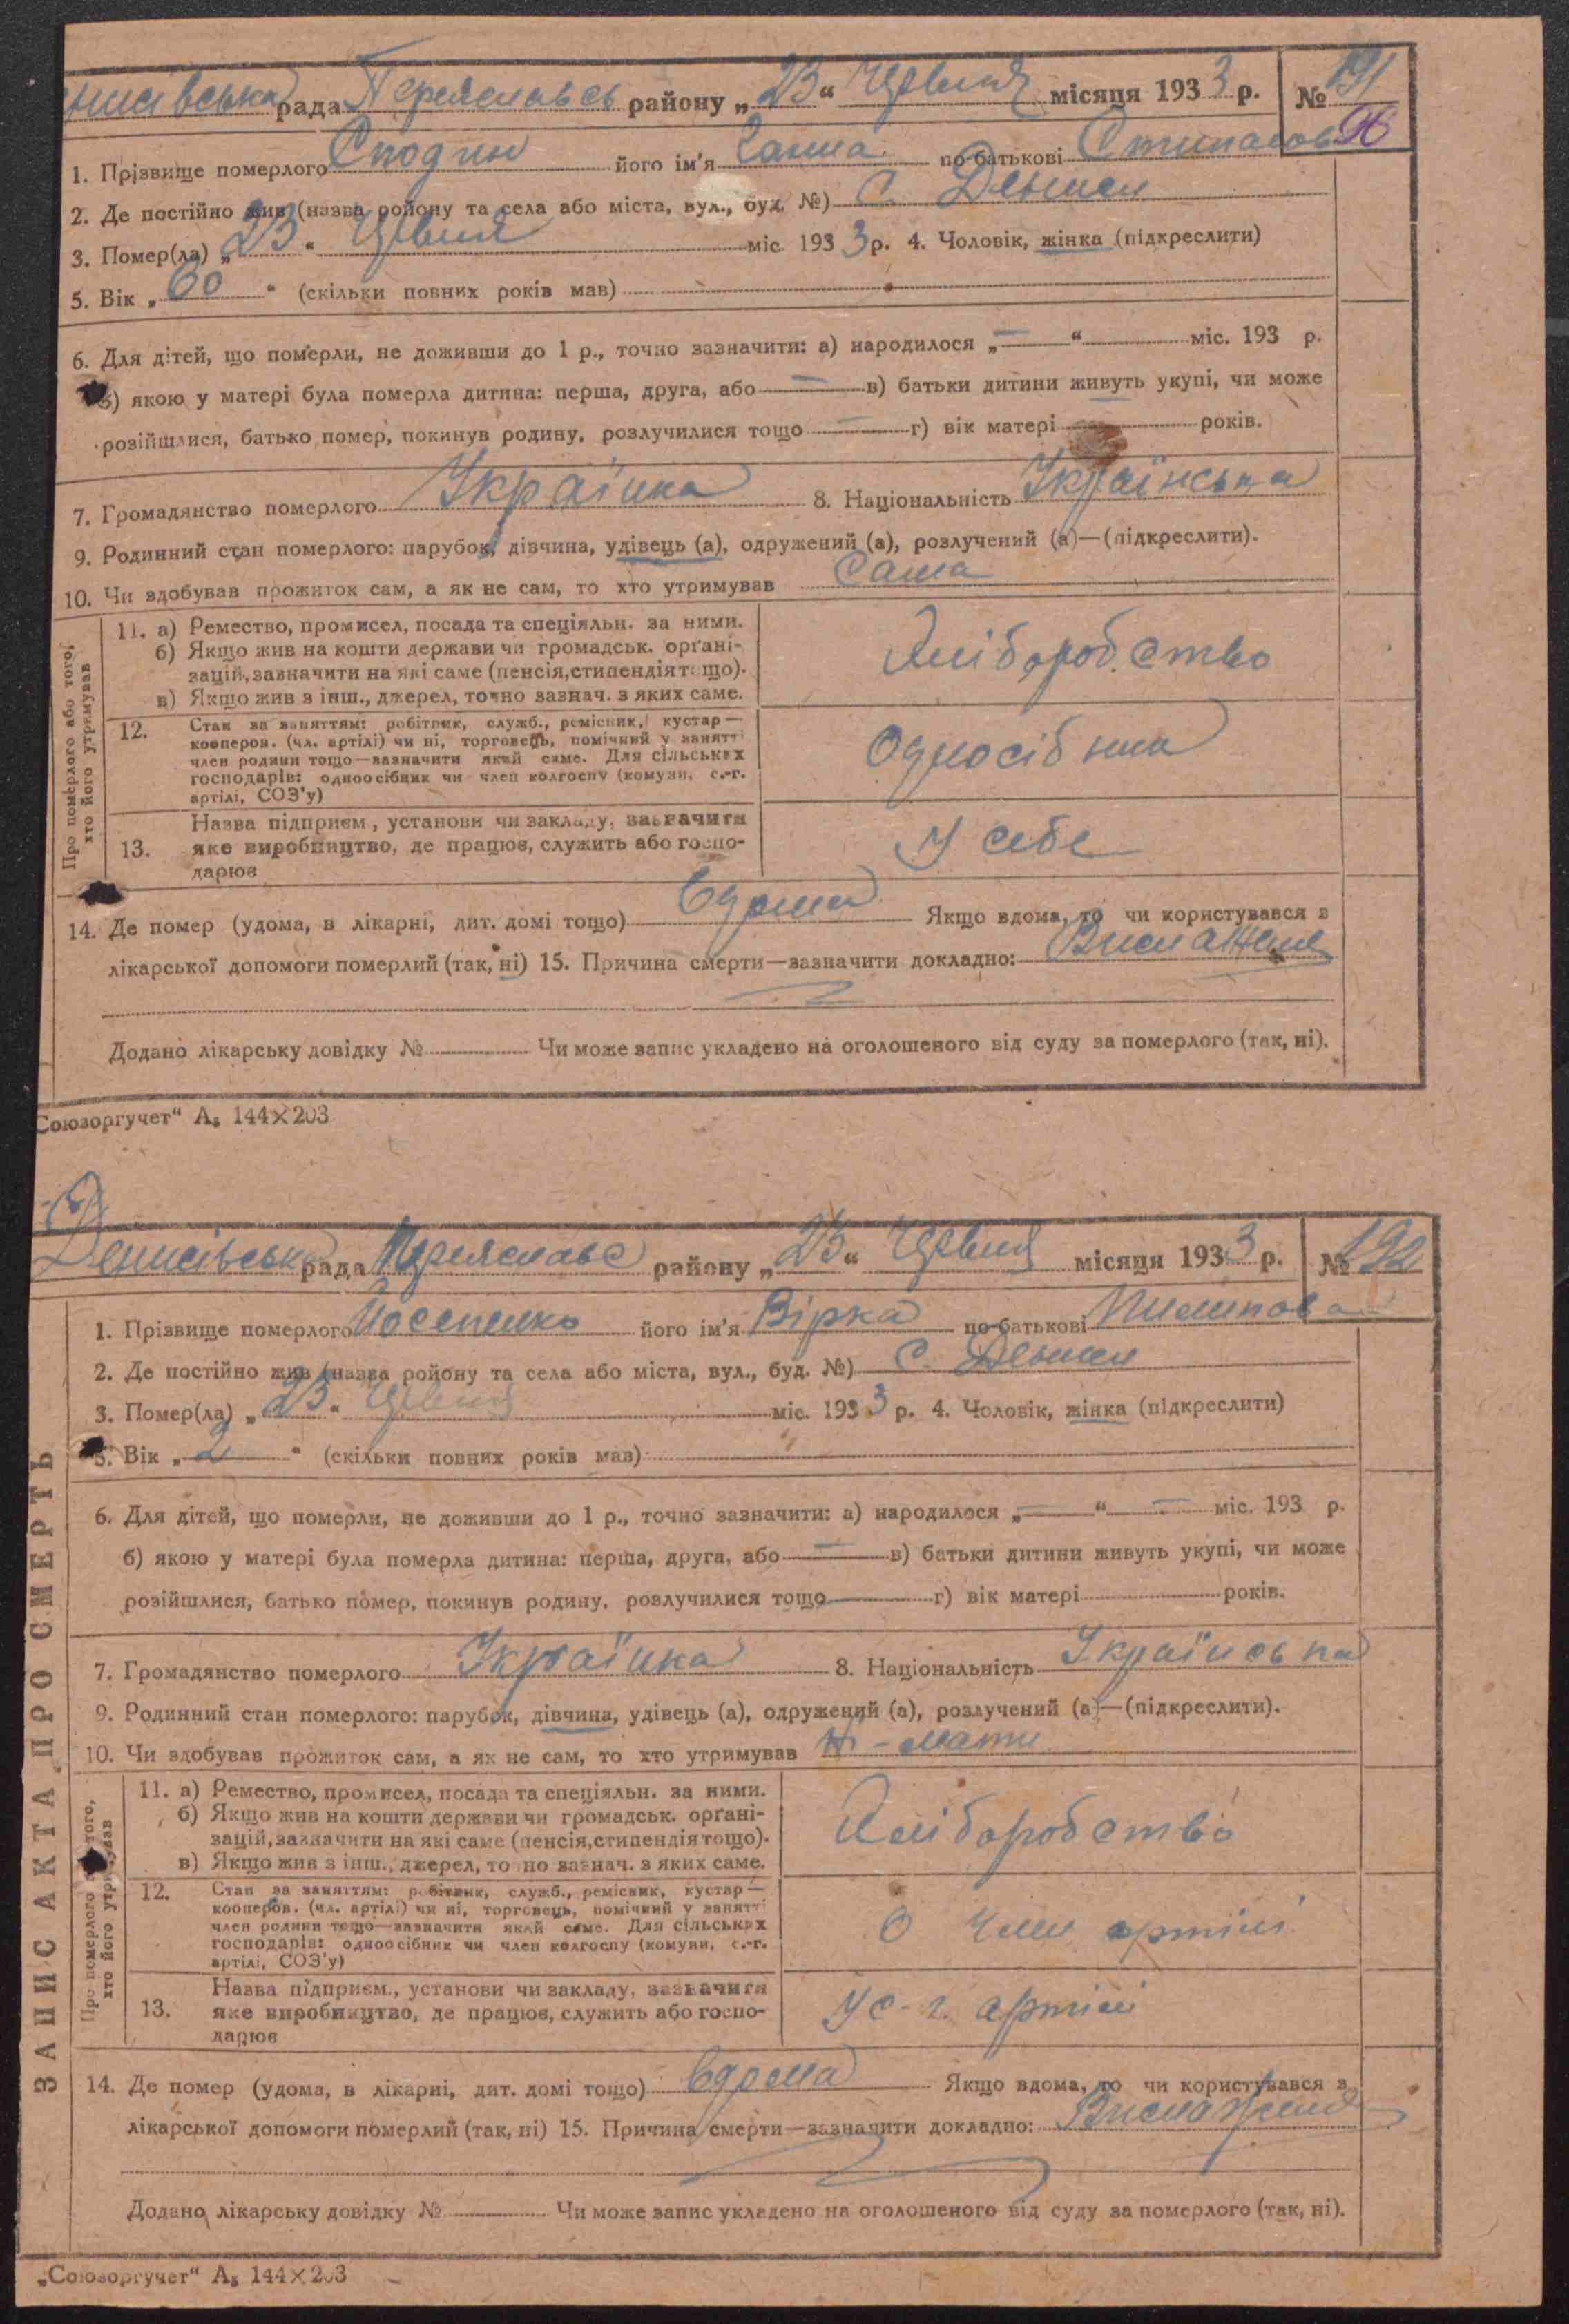 нисівська рада Переяславсь району „23“ Червня місяця 1933 р. № 191
96
1. Прізвище померлого Сподин його ім'я Ганна по-батькові
2. Де постійно жив (назва ройону та села або міста, вул., буд. №) С. Деньги
3. Помер(ла) „23“ Червня міс. 1933 р. 4. Чоловік, жінка (підкреслити)
5. Вік „60“ (скільки повних років мав)
6. Для дітей, що померли, не доживши до 1 р., точно зазначити: а) народилося „—“ міс. 193 р.
б) якою у матері була померла дитина: перша, друга, або — в) батьки дитини живуть укупі, чи може
розійшлися, батько помер, покинув родину, розлучилися тощо — г) вік матері — років.
7. Громадянство померлого Українка 8. Національність Українська
9. Родинний стан померлого: парубок, дівчина, удівець (а), одружений (а), розлучений (а)—(підкреслити).
10. Чи здобував прожиток сам, а як не сам, то хто утримував Сама
Про померлого або того,
хто його утримував
11. а) Ремество, промисел, посада та спеціяльн. за ними.
б) Якщо жив на кошти держави чи громадськ. орґані-
зацій, зазначити на які саме (пенсія, стипендія тощо).
в) Якщо жив з інш., джерел, точно зазнач. з яких саме.
Хліборобство
12. Стан за заняттям: робітник, служб., ремісник, кустар—
коопероя. (чл. артілі) чи ні, торговець, помічний у занятті
член родини тощо—зазначити який саме. Для сільських
господарів: одноосібник чи член колгоспу (комуни, с.-г.
артілі, СОЗ'у)
Односібниц
13. Назва підприєм., установи чи закладу, зазначити
яке виробництво, де працює, служить або госпо-
дарює
У себе
14. Де помер (удома, в лікарні, дит. домі тощо) Вдома Якщо вдома, то чи користувався з
лікарської допомоги померлий (так, ні) 15. Причина смерти—зазначити докладно: Виснаження
Додано лікарську довідку № Чи може запис укладено на оголошеного від суду за померлого (так, ні).
Союзоргучет“ А₅ 144×203
ЗАПИС АКТА ПРО СМЕРТЬ
Денисівська рада Переяславс району „23“ Червня місяця 1933 р. № 192
1. Прізвище померлого Йосепенко його ім'я Вірка по-батькові Пилипова
2. Де постійно жив (назва ройону та села або міста, вул., буд. №) С. Деньги
3. Помер(ла) „23“ Червня міс. 1933 р. 4. Чоловік, жінка (підкреслити)
5. Вік „2“ (скільки повних років мав)
6. Для дітей, що померли, не доживши до 1 р., точно зазначити: а) народилося „—“ — міс. 193 р.
б) якою у матері була померла дитина: перша, друга, або — в) батьки дитини живуть укупі, чи може
розійшлися, батько помер, покинув родину, розлучилися тощо г) вік матері років.
7. Громадянство померлого Українка 8. Національність Українська
9. Родинний стан померлого: парубок, дівчина, удівець (а), одружений (а), розлучений (а)—(підкреслити).
10. Чи здобував прожиток сам, а як не сам, то хто утримував Ні - мати
Про померлого або того,
хто його утримував
11. а) Ремество, промисел, посада та спеціяльн. за ними.
б) Якщо жив на кошти держави чи громадськ. орґані-
зацій, зазначити на які саме (пенсія, стипендія тощо).
в) Якщо жив з інш., джерел, точно зазнач. з яких саме.
Хліборобство
12. Стан за заняттям: робітник, служб., ремісник, кустар—
кооперов. (чл. артілі) чи ні, торговець, помічний у занятті
член родини тощо—зазначити який саме. Для сільських
господарів: одноосібник чи член колгоспу (комуни, с.-г.
артілі, СОЗ'у)
О член артілі
13. Назва підприєм., установи чи закладу, зазначити
яке виробництво, де працює, служить або госпо-
дарює
У с-г. артілі
14. Де помер (удома, в лікарні, дит. домі тощо) Вдома Якщо вдома, то чи користувався з
лікарської допомоги померлий (так, ні) 15. Причина смерти—зазначити докладно: Виснаження
Додано лікарську довідку № Чи може запис укладено на оголошеного від суду за померлого (так, ні).
„Союзоргучет“ А₅ 144×203